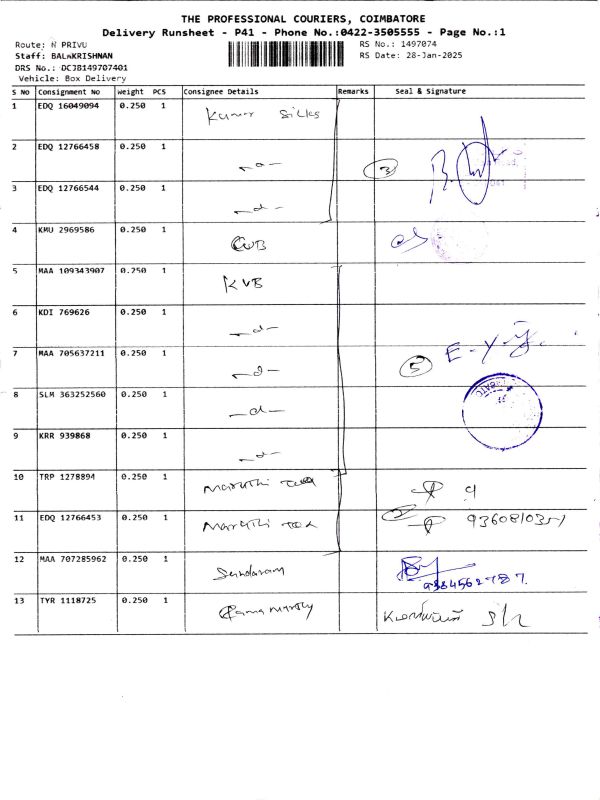 THE PROFESSIONAL COURIERS, COIMBATORE
Delivery Runsheet - P41 - Phone No.:0422-3505555 - Page No.:1
Route: N PRIVU
RS No.: 1497074
Staff: BALAKRISHNAN
RS Date: 28-Jan-2025
DRS No.: DCJB149707401
Vehicle: Box Delivery
S No Consignment No Weight PCS Consignee Details Remarks Seal & Signature
1 EDQ 16049094 0.250 1 Kumar Silks
2 EDQ 12766458 0.250 1 —d— 3
3 EDQ 12766544 0.250 1 —d—
4 KMU 2969586 0.250 1 CUB
5 MAA 109343907 0.250 1 KVB
6 KDI 769626 0.250 1 —d—
7 MAA 705637211 0.250 1 —d— 5
8 SLM 363252560 0.250 1 —d—
9 KRR 939868 0.250 1 —d—
10 TRP 1278894 0.250 1 Maruthi
11 EDQ 12766453 0.250 1 Maruthi
12 MAA 707285962 0.250 1 Sundaram
13 TYR 1118725 0.250 1 Ramamurthy